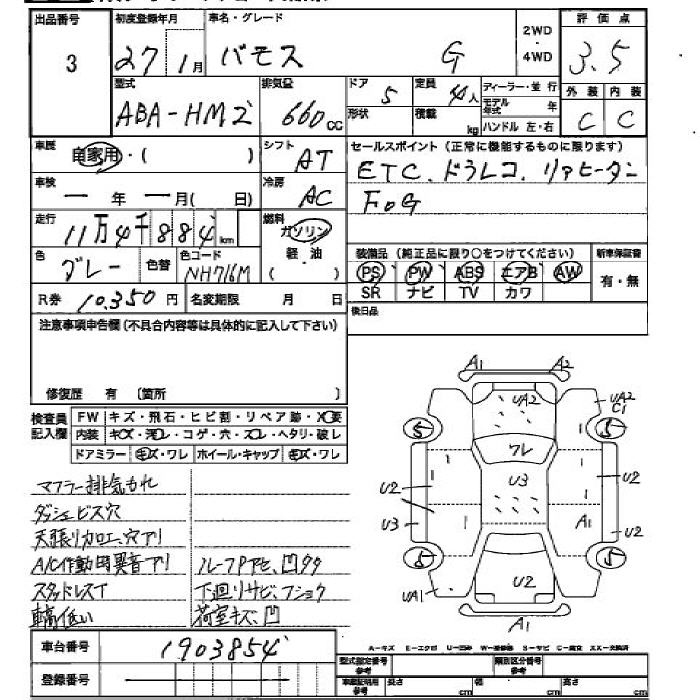 出品番号 初度登録年月 車名・グレード 2WD・4WD 評価点
3 27年1月 バモス G 3.5
型式 排気量 ドア 定員 ディーラー・並行 外装 内装
ABA-HM2 660cc 5 4人 モデル年式 年 C C
形状 積載 kg ハンドル 左・右
車歴 自家用・( ) シフト AT セールスポイント(正常に機能するものに限ります)
車検 ー年ー月( 日) 冷房 AC ETC、ドラレコ、リアヒータン
FoG
走行 11万4千884km 燃料 ガソリン
軽・油
( )
色 グレー 色替 色コード NH716M
装備品(純正品に限り○をつけてください) 新車保証書
PS PW ABS エアB AW 有・無
SR ナビ TV カワ
R券 10,350円 名変期限 月 日
後日品
注意事項申告欄(不具合内容等は具体的に記入して下さい)
修復歴 有 〔箇所 〕
検査員記入欄
FW キズ・飛石・ヒビ割・リペア跡・X要
内装 キズ・汚レ・コゲ・穴・スレ・ヘタリ・破レ
ドアミラー キズ・ワレ ホイール・キャップ キズ・ワレ
マフラー排気もれ
ダッシュビス穴
天張リカロエ、穴アリ
A/C作動時異音アリ ルーフPアセ、凹多タ
スタッドレスT 下廻リサビ、フショク
車高低い 荷室キズ、凹
A1 A2
UA2 UA2
C1
S S
ワレ
U2 U3 U2
U3 A1 U2
S S
UA1 U2
A1
A-キズ E-エクボ U-凹み W-補修跡 S-サビ C-腐食 XX-交換済
車台番号 1903854
登録番号
型式指定番号 参考 類別区分番号 参考
車庫証明用 参考 長さ cm 幅 cm 高さ cm